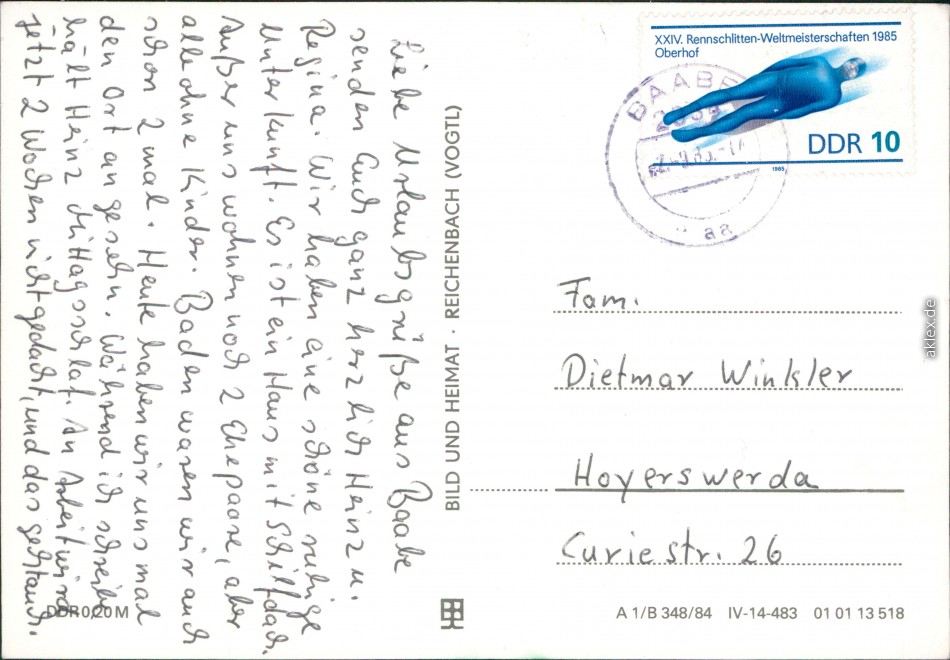 Liebe Urlaubsgrüße aus Baabe
senden Euch ganz herzlich Heinz u.
Regina. Wir haben eine schöne ruhige
Unterkunft. Es ist ein Haus mit Schilfdach.
Außer uns wohnen noch 2 Ehepaare, aber
alle ohne Kinder. Baden waren wir auch
schon 2 mal. Heute haben wir uns mal
den Ort angesehn. Während ich schreibe
hält Heinz Mittagsschlaf. An Arbeit wird
jetzt 2 Wochen nicht gedacht, und das
DDR 0,20 M
BILD UND HEIMAT · REICHENBACH (VOGTL)
XXIV. Rennschlitten-Weltmeisterschaften 1985
Oberhof
DDR 10
1985
BAABE
aa
Fam.
Dietmar Winkler
Hoyerswerda
Curiestr. 26
A 1/B 348/84 IV-14-483 01 01 13 518
aklex.de